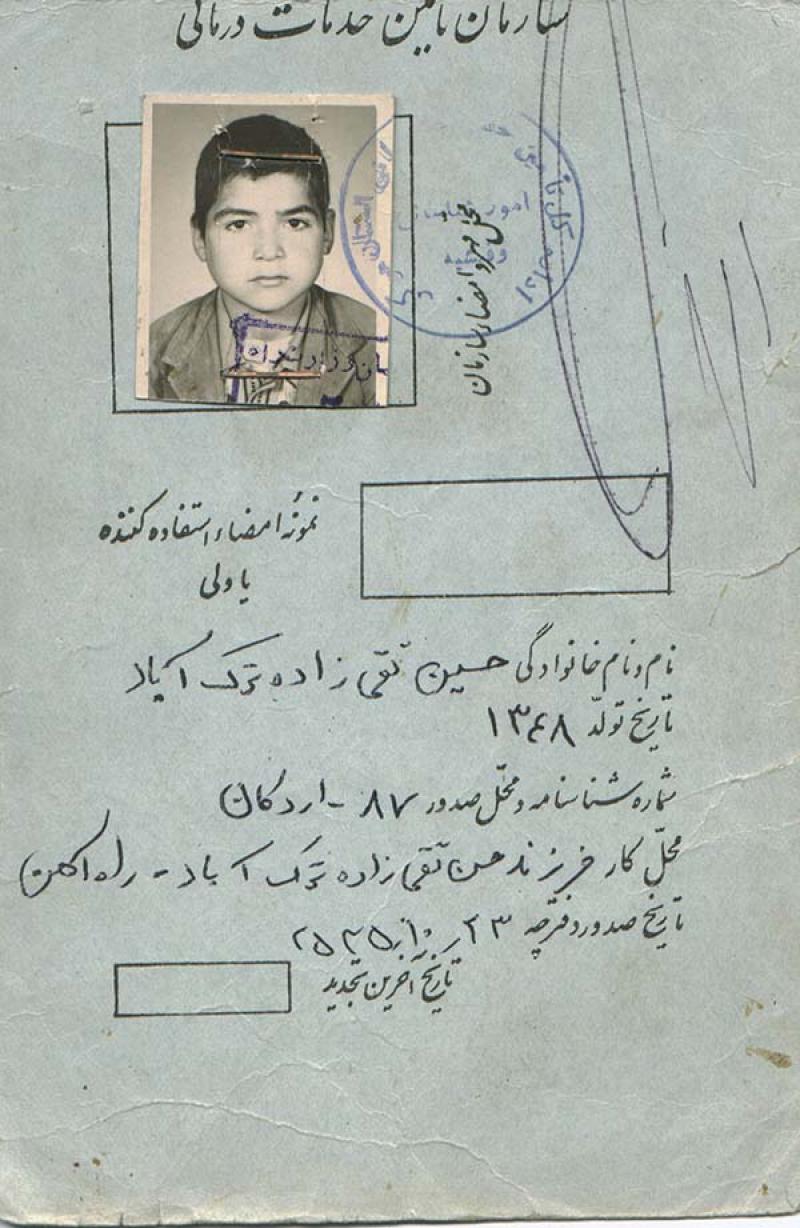 سازمان تأمین خدمات درمانی
محل مهر و امضاء سازمان
نمونه امضاء استفاده کننده
یا ولی
نام و نام خانوادگی حسین تقی زاده ترک آباد
تاریخ تولد ۱۳۴۸
شماره شناسنامه و محل صدور ۸۷ - اردکان
محل کار فرزند حسن تقی زاده ترک آباد - راه آهن
تاریخ صدور دفترچه ۲۳ر۱۰ر۲۵۳۵
تاریخ آخرین تجدید